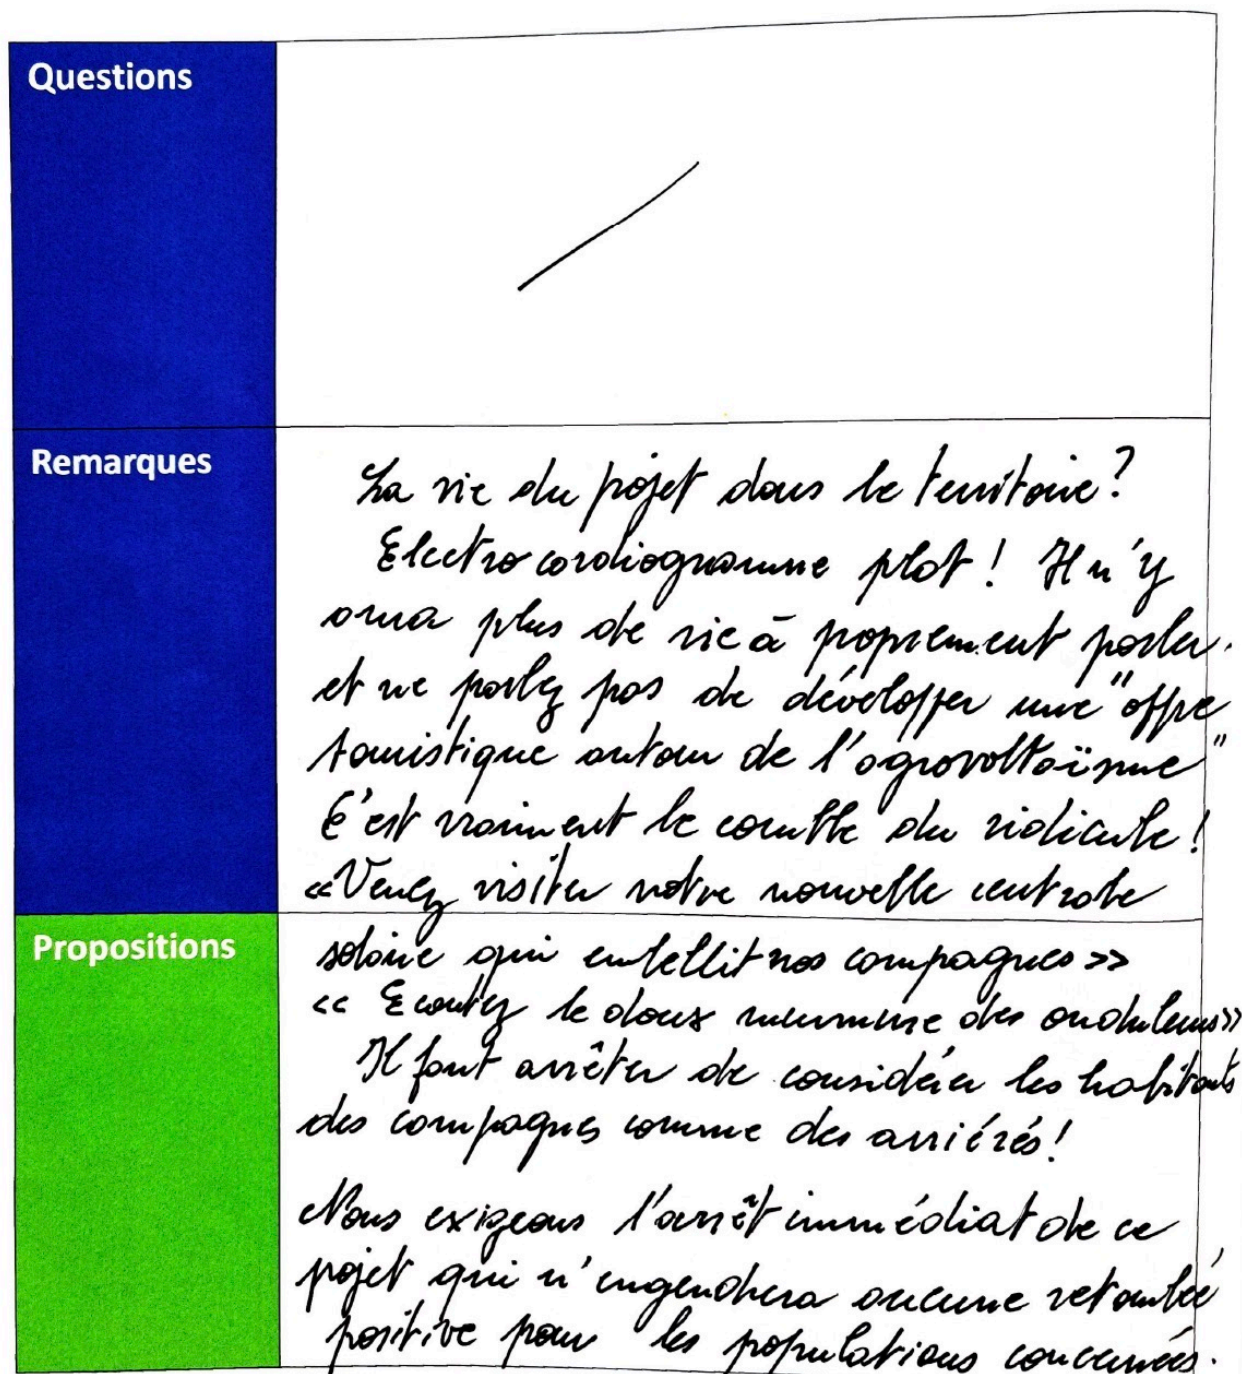 Questions
Remarques
La vie du projet dans le territoire?
Electrocardiogramme plat! Il n'y
aura plus de vie à proprement parler.
et ne parlez pas de développer une "offre
touristique autour de l'agrovoltaïsme"
C'est vraiment le comble du ridicule!
«Venez visiter notre nouvelle centrale
Propositions
solaire qui embellit nos campagnes»
« Ecoutez le doux murmure des onduleurs»
Il faut arrêter de considérer les habitants
des campagnes comme des arriérés!
Nous exigeons l'arrêt immédiat de ce
projet qui n'engendrera aucune retombée
positive pour les populations concernées.